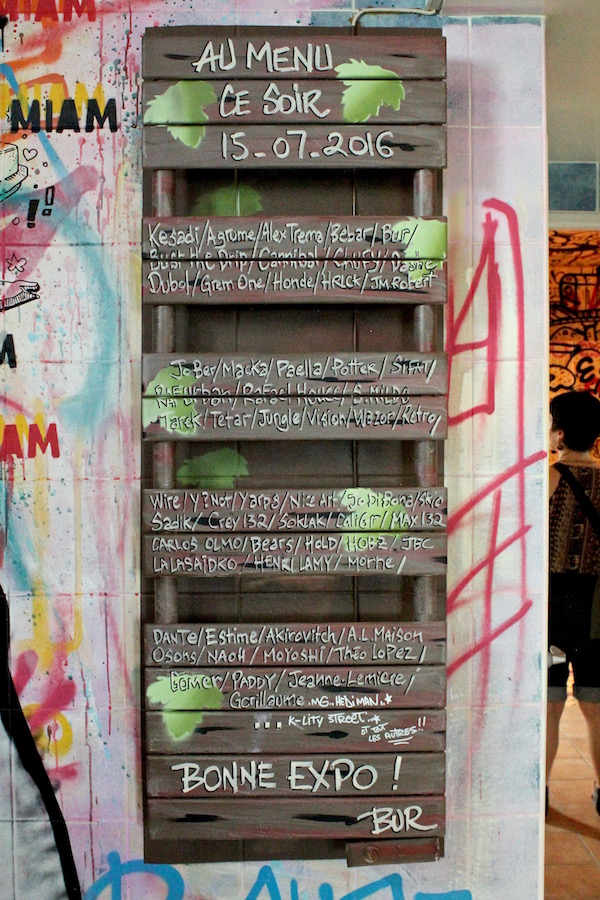 MIAM
MIAM
AM
AU MENU
CE SOIR
15_07_2016
Kesadi/Agrume/Alex Trema/Bebar/Bur/
Bust the Drip/Cannibal/Chufy/Desire
Dubol/Grem One/Honde/HRick/JM.Robert
Jo Ber/Macka/Paella/Potter/
Raf Urban/Rafael House/S.Mildo
Marek/Tetar/Jungle/Vision/Wazor/Retro/
Wire/Y?Not/Yarps/Nice Art/Jo Di Bona/
Sadlk/Crey 132/Soklak/Caligr/Max 132
CARLOS OLMO/Bears/Hold/HOBZ/JBC
LALASAIDKO/HENRI LAMY/Morne/
DANTe/Estime/Akirovitch/A.L.Maison
Osons/NAOH/MOYOSHI/Théo LoPEZ/
Gomer/PADDY/Jeanne-Lemière/
Gorillaume.MG.HEDIMAN..*
... K-LITY STREET..*
ET TOUT LES AUTRES!!
BONNE EXPO !
BUR